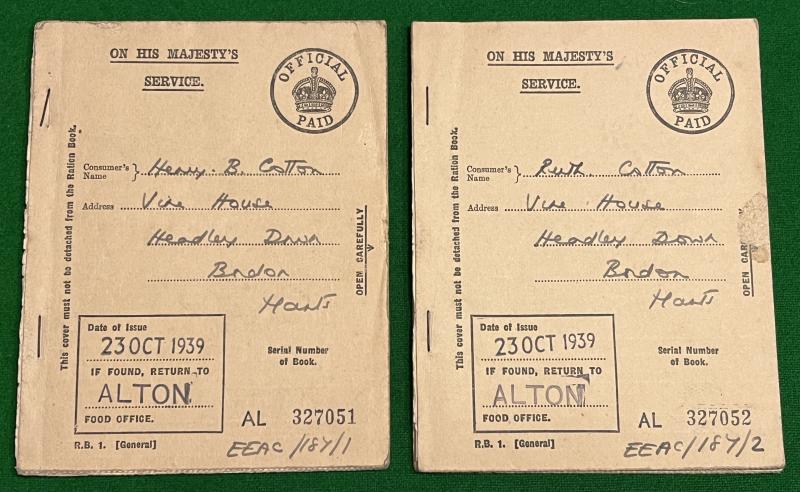 ON HIS MAJESTY'S
SERVICE.
OFFICIAL
PAID
Consumer's
Name
Henry. B. Cotton
Address
Vine House
Headley Down
Bordon
Hants
This cover must not be detached from the Ration Book.
OPEN CAREFULLY
Date of Issue
23 OCT 1939
IF FOUND, RETURN TO
ALTON
FOOD OFFICE.
Serial Number
of Book.
AL 327051
R.B. 1. [General]
EEAC/187/1
ON HIS MAJESTY'S
SERVICE.
OFFICIAL
PAID
Consumer's
Name
Ruth Cotton
Address
Vine House
Headley Down
Bordon
Hants
This cover must not be detached from the Ration Book.
OPEN CAR
Date of Issue
23 OCT 1939
IF FOUND, RETURN TO
ALTON
FOOD OFFICE.
Serial Number
of Book.
AL 327052
R.B. 1. [General]
EEAC/187/2